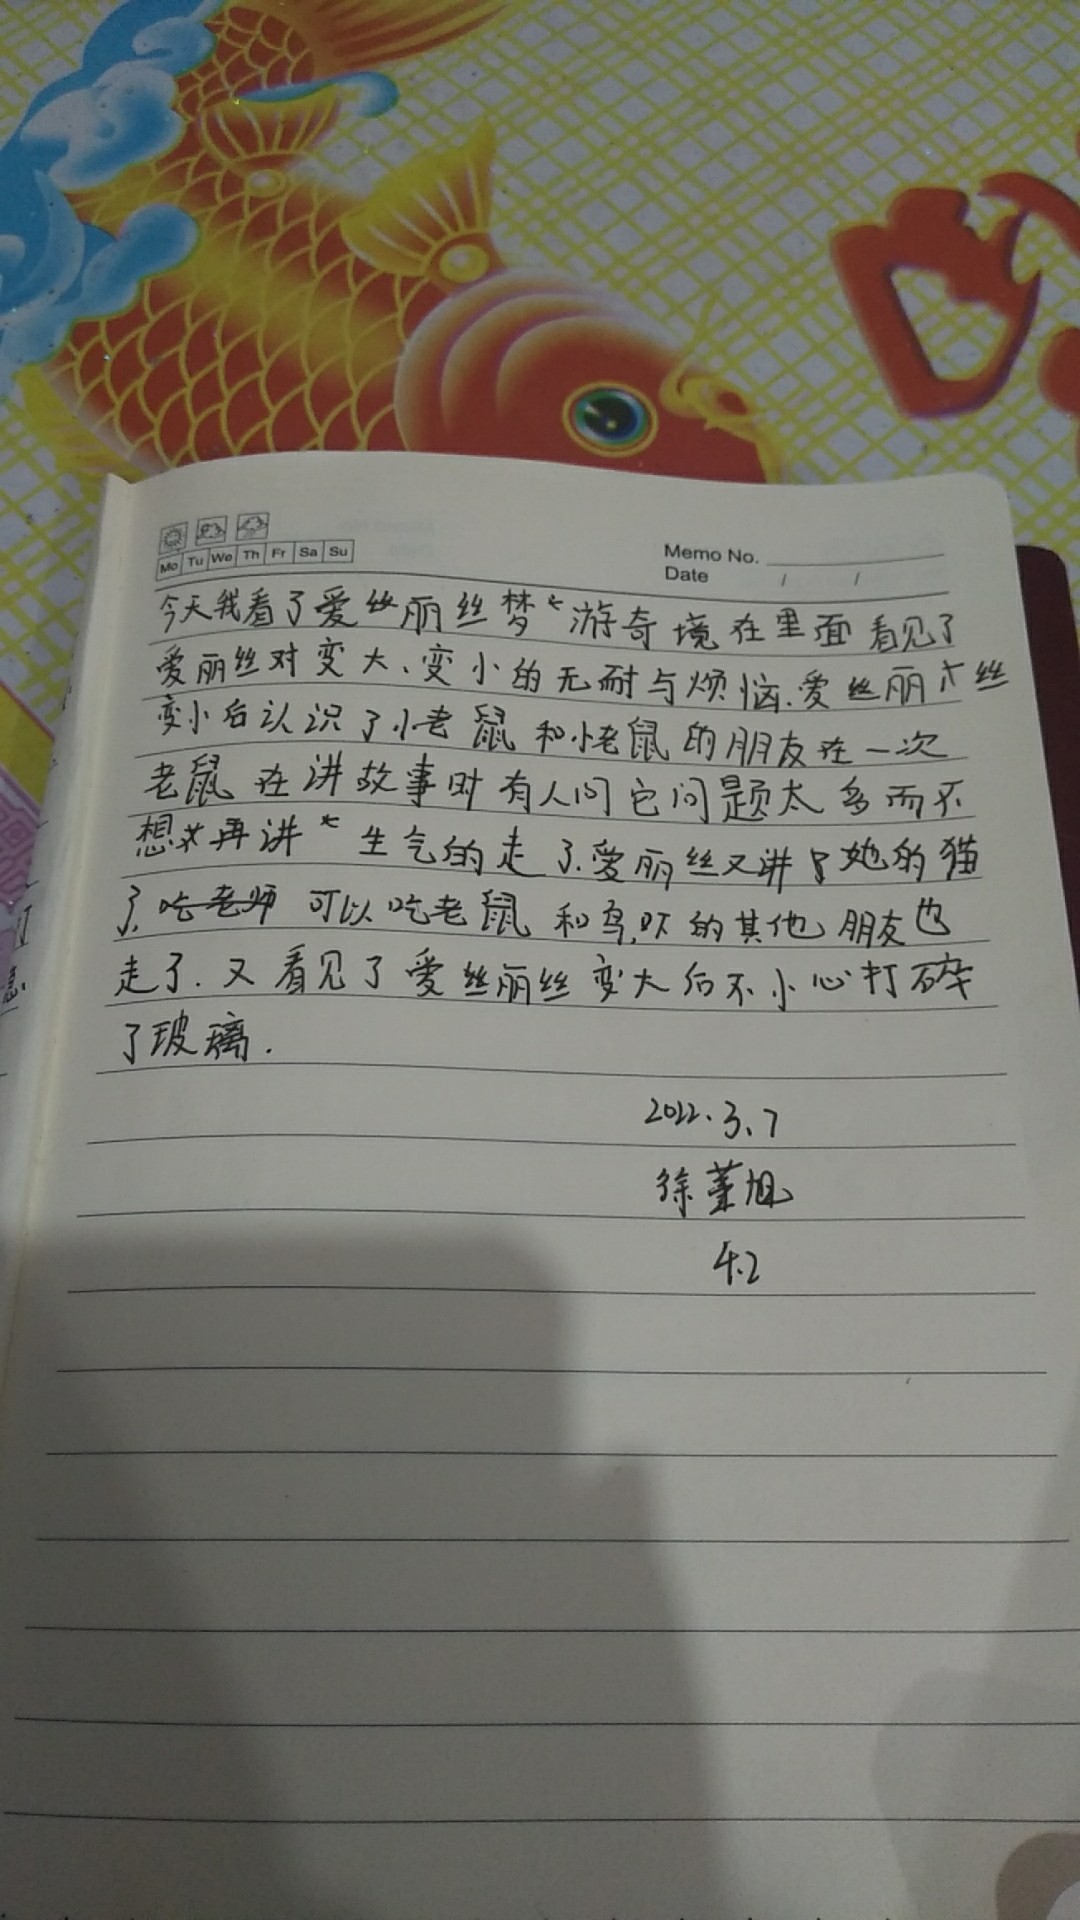 Mo Tu We Th Fr Sa Su
Memo No.
Date / /
今天我看了爱丝丽丝梦游奇境在里面看见了
爱丽丝对变大、变小的无耐与烦恼.爱丝丽丝
变小后认识了小老鼠和小老鼠的朋友在一次
老鼠在讲故事时有人问它问题太多而不
想再讲生气的走了.爱丽丝又讲她的猫
了.吃老师可以吃老鼠和鸟,吓的其他朋友也
走了.又看见了爱丝丽丝变大后不小心打碎
了玻璃.
2022.3.7
徐堇旭
4.2